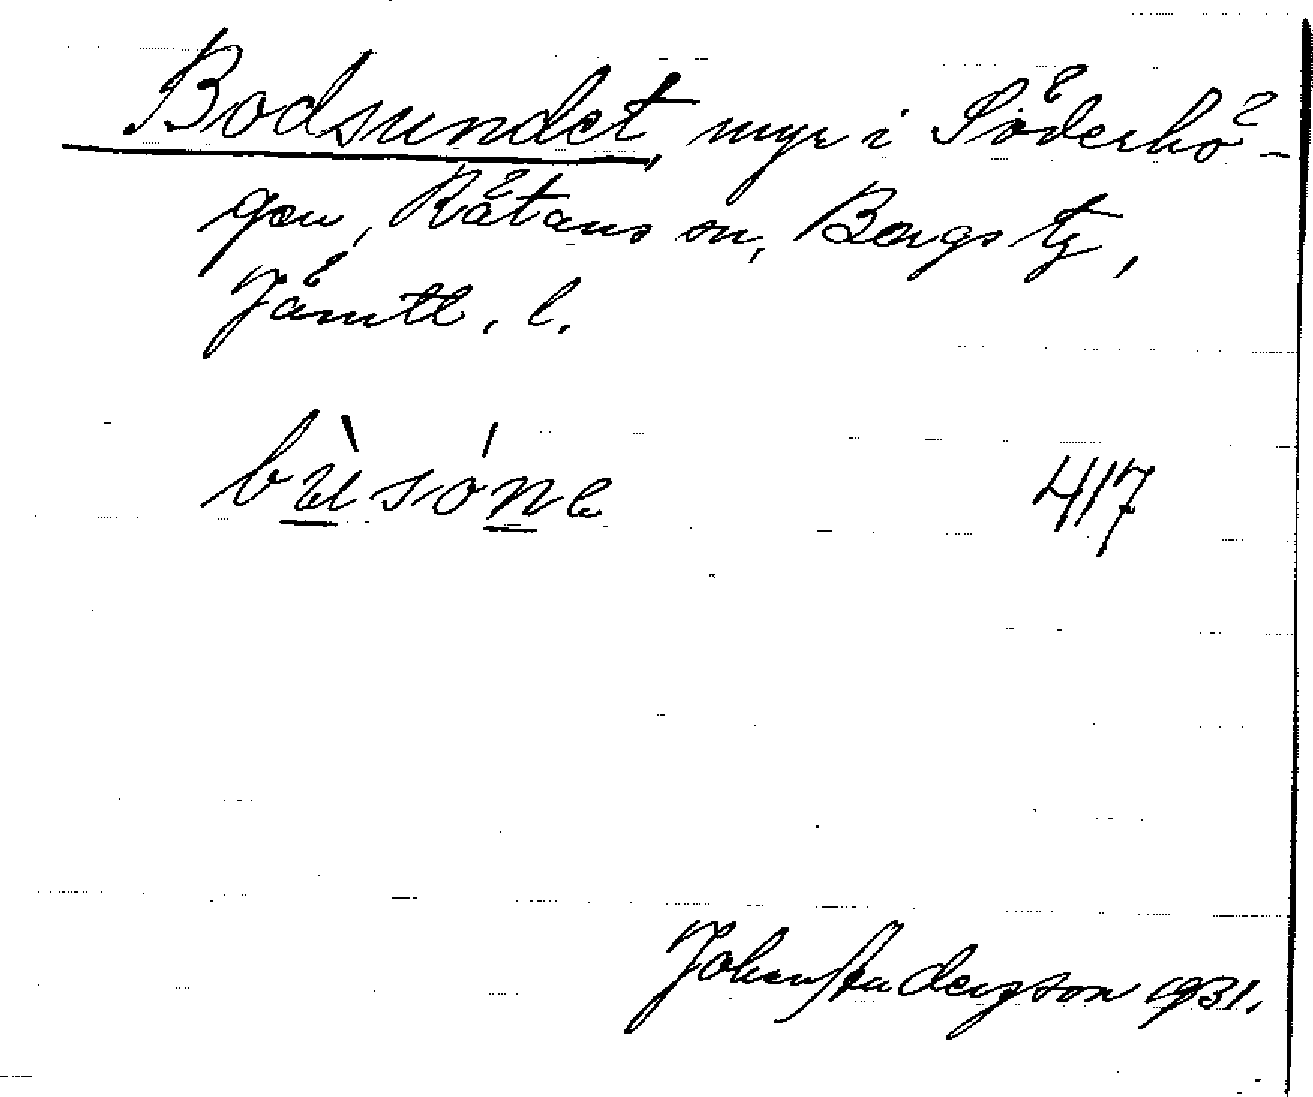 Bodsundet, myr i Söderhö-
gen, Rätans sn, Bergs tg,
Jämtl. l.
bùsóne 417
Johan Andersson 1931.